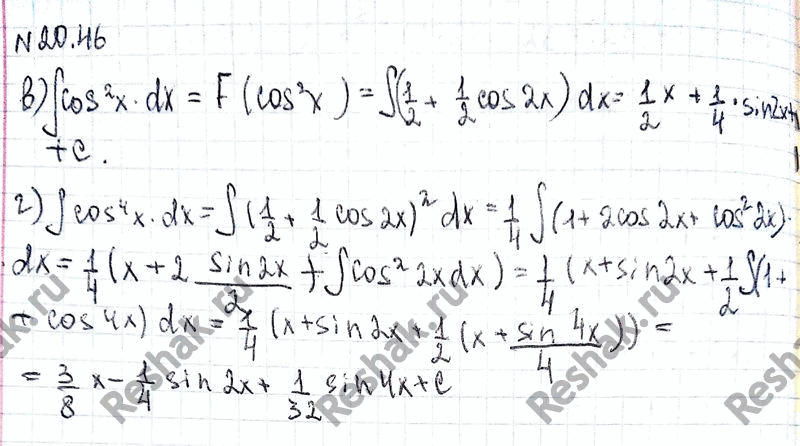 N 20.46
в) ∫cos²x · dx = F (cos²x) = ∫(1/2 + 1/2 cos 2x) dx = 1/2 x + 1/4 · sin2x +
+ C.
г) ∫cos⁴x · dx = ∫(1/2 + 1/2 cos 2x)² dx = 1/4 ∫(1 + 2cos 2x + cos² 2x) ·
· dx = 1/4 (x + 2 sin2x/2 + ∫cos² 2x dx) = 1/4 (x + sin2x + 1/2 ∫(1 +
+ cos 4x) dx = 1/4 (x + sin 2x + 1/2 (x + sin 4x/4)) =
= 3/8 x - 1/4 sin 2x + 1/32 sin 4x + C
Reshak.ru
Reshak.ru
Reshak.ru
Reshak.ru